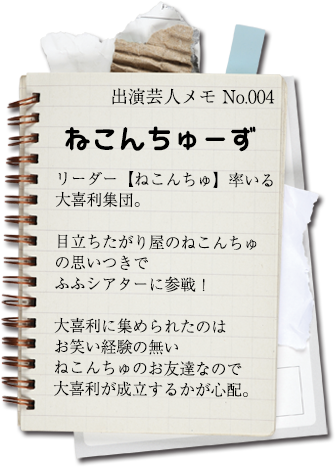 出演芸人メモ No.004
ねこんちゅーず
リーダー【ねこんちゅ】率いる
大喜利集団。
目立ちたがり屋のねこんちゅ
の思いつきで
ふふシアターに参戦！
大喜利に集められたのは
お笑い経験の無い
ねこんちゅのお友達なので
大喜利が成立するかが心配。